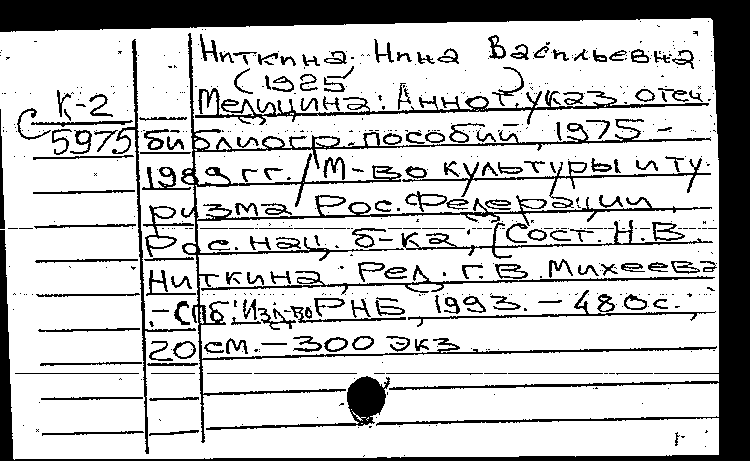 Ниткина Нина Васильевна
(1925 )
К-2
С 5975
Медицина: Аннот. указ. отеч.
библиогр. пособий, 1975 -
1989 гг. / М-во культуры и ту-
ризма Рос. Федерации,
Рос. нац. б-ка; [Сост. Н.В.
Ниткина; Ред. Г.В. Михеева
. - СПб: Изд-во РНБ, 1993. - 480 с.;
20 см. - 300 экз.